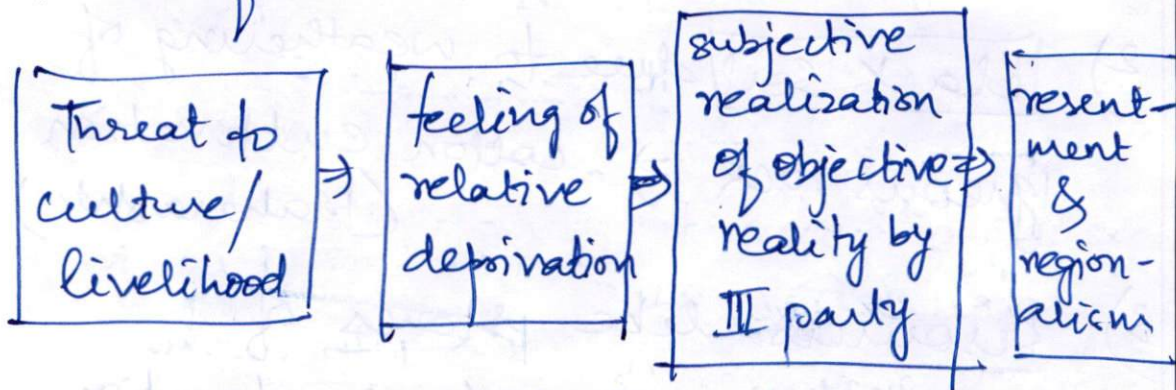 Threat to
culture/
livelihood
⇒
feeling of
relative
deprivation
⇒
subjective
realization
of objective
reality by
III party
⇒
resent-
ment
&
region-
alism